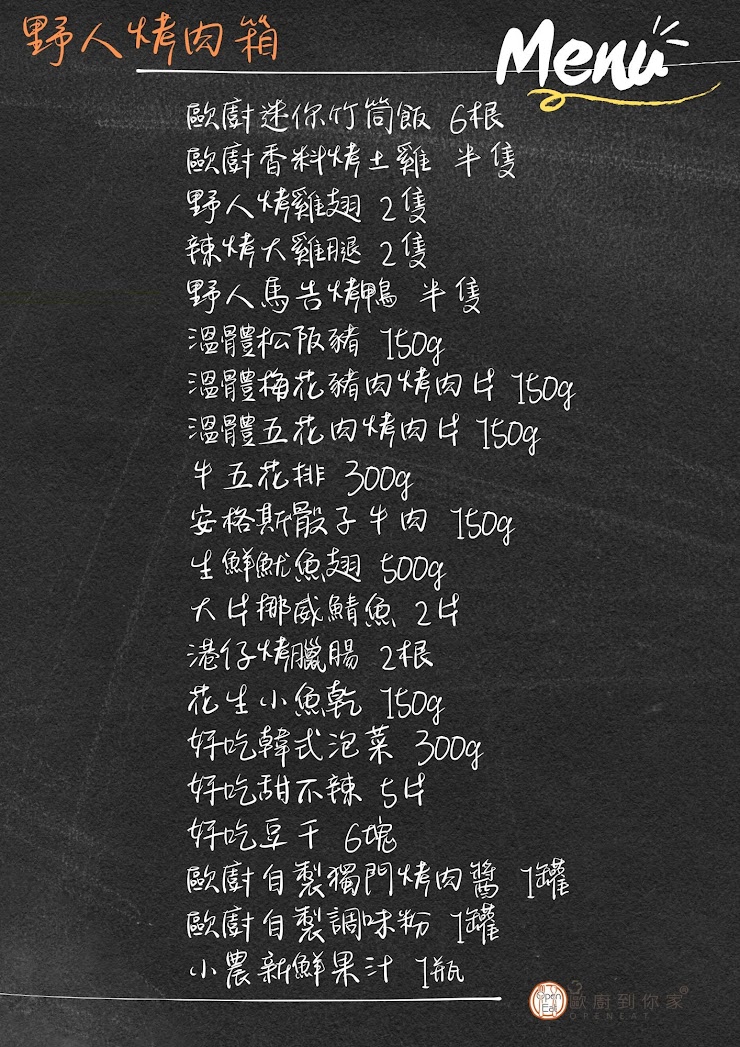 野人烤肉箱
Menu
歐廚迷你竹筒飯 6根
歐廚香料烤土雞 半隻
野人烤雞翅 2隻
辣烤大雞腿 2隻
野人馬告烤鴨 半隻
溫體松阪豬 150g
溫體梅花豬肉烤肉片 150g
溫體五花肉烤肉片 150g
牛五花排 300g
安格斯骰子牛肉 150g
生鮮魷魚翅 500g
大片挪威鯖魚 2片
港仔烤臘腸 2根
花生小魚乾 150g
好吃韓式泡菜 300g
好吃甜不辣 5片
好吃豆干 6塊
歐廚自製獨門烤肉醬 1罐
歐廚自製調味粉 1罐
小農新鮮果汁 1瓶
Open Eat
歐廚到你家®
OPENEAT